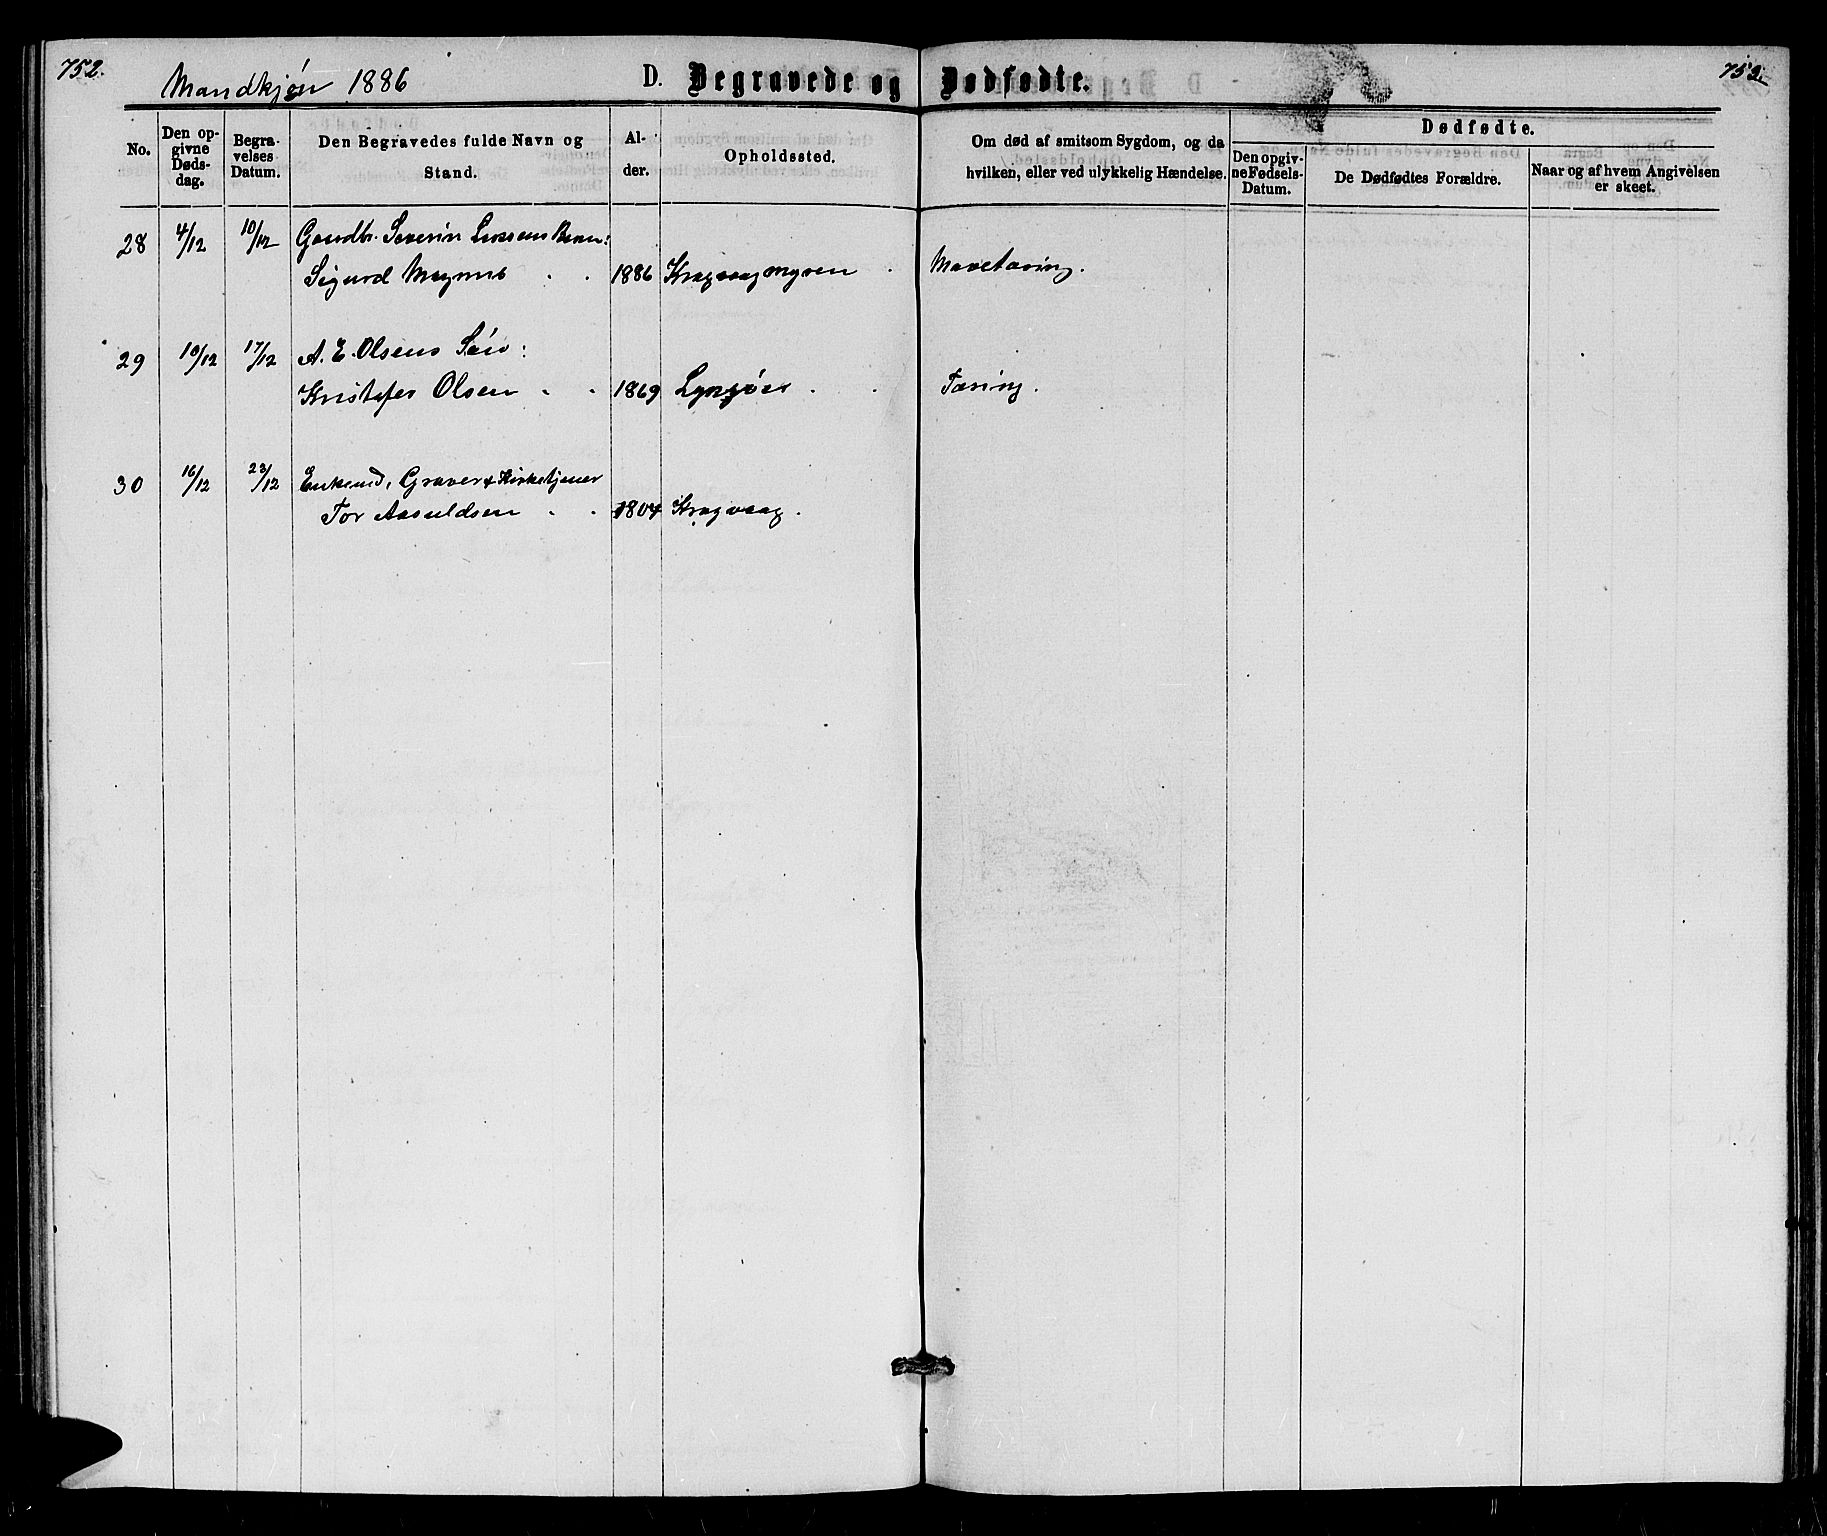 752.
Mandkjøn 1886
D. Begravede og Dødfødte.
752
No.
Den opgivne Dødsdag.
Begravelses Datum.
Den Begravedes fulde Navn og Stand.
Alder.
Opholdssted.
Om død af smitsom Sygdom, og da hvilken, eller ved ulykkelig Hændelse.
Dødfødte.
Den opgivne Fødsels-Datum.
De Dødfødtes Forældre.
Naar og af hvem Angivelsen er skeet.
28 4/12 10/12 Gaardbr. Severin Larsens Barn:
Sigurd Magnus 1886 Kragvaagmyren. Mavetæring.
29 10/12 17/12 A. E. Olsens Søn:
Kristofer Olsen 1869 Lyngøer. Tæring.
30 16/12 23/12 Enkemd, Graver & Kirketjener
Tor Aasuldsen 1804 Kragvaag.